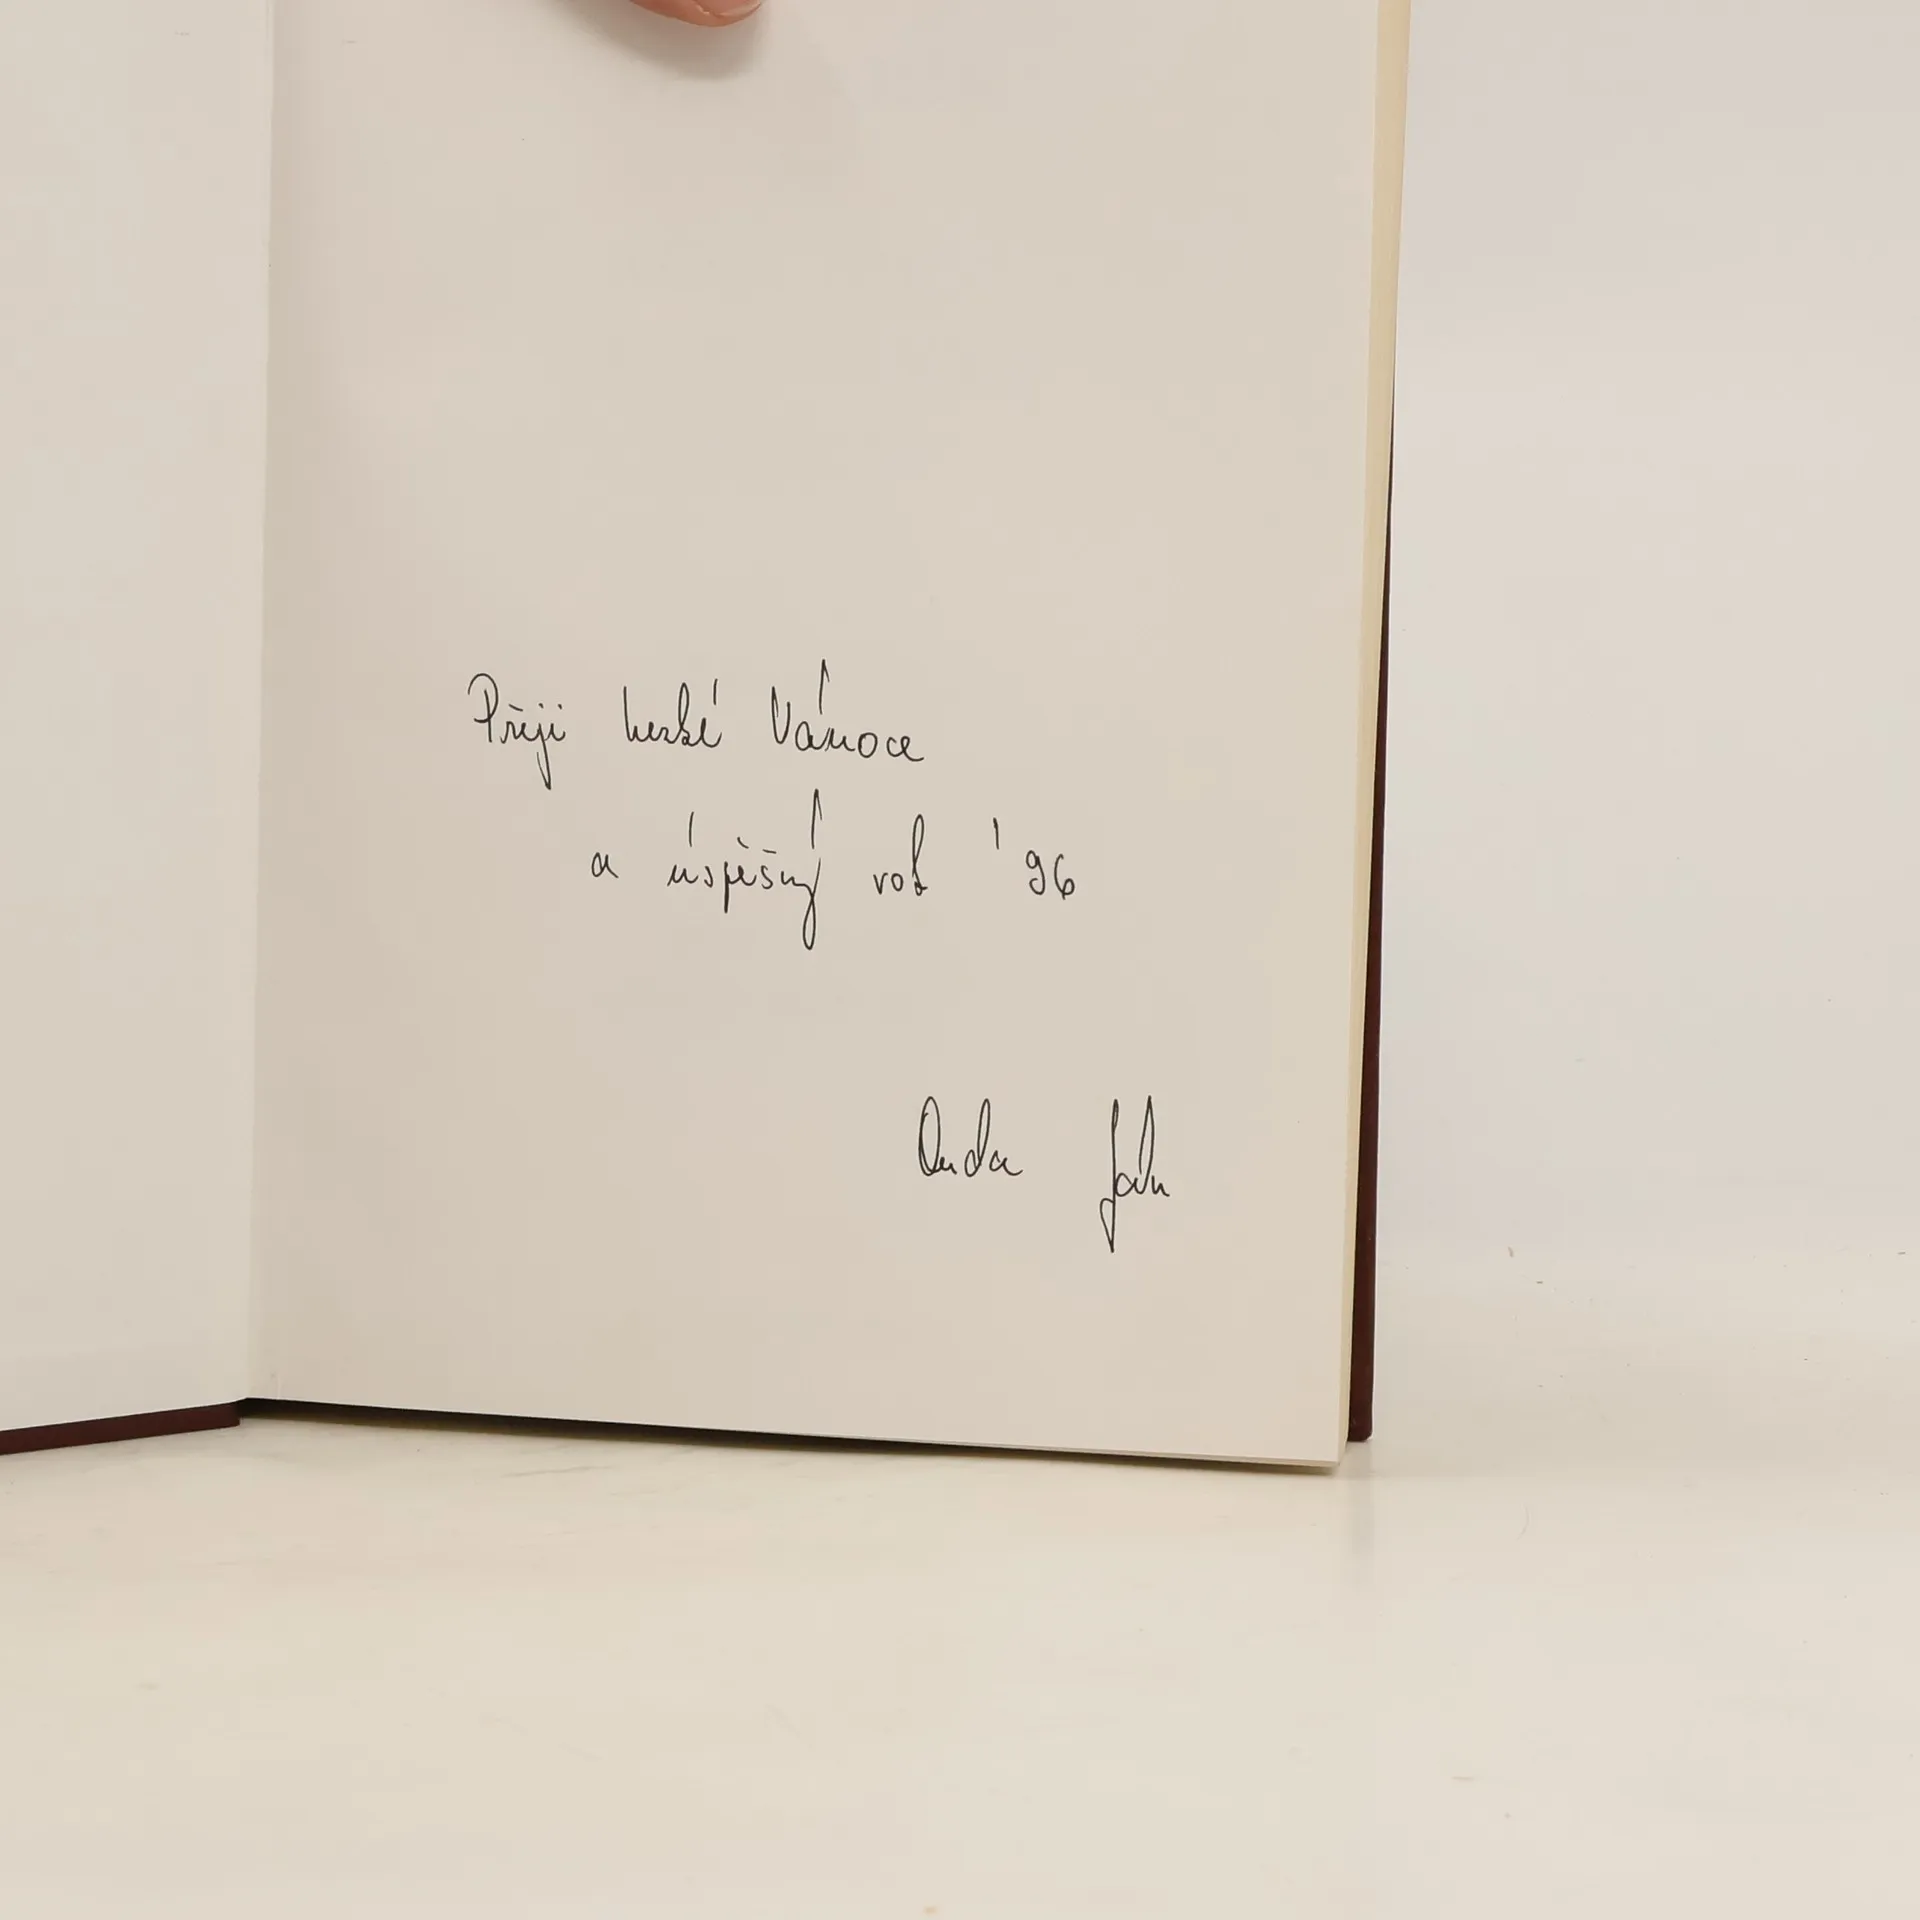 Přeji hezké Vánoce
a úspěšný rok '96
Jahn